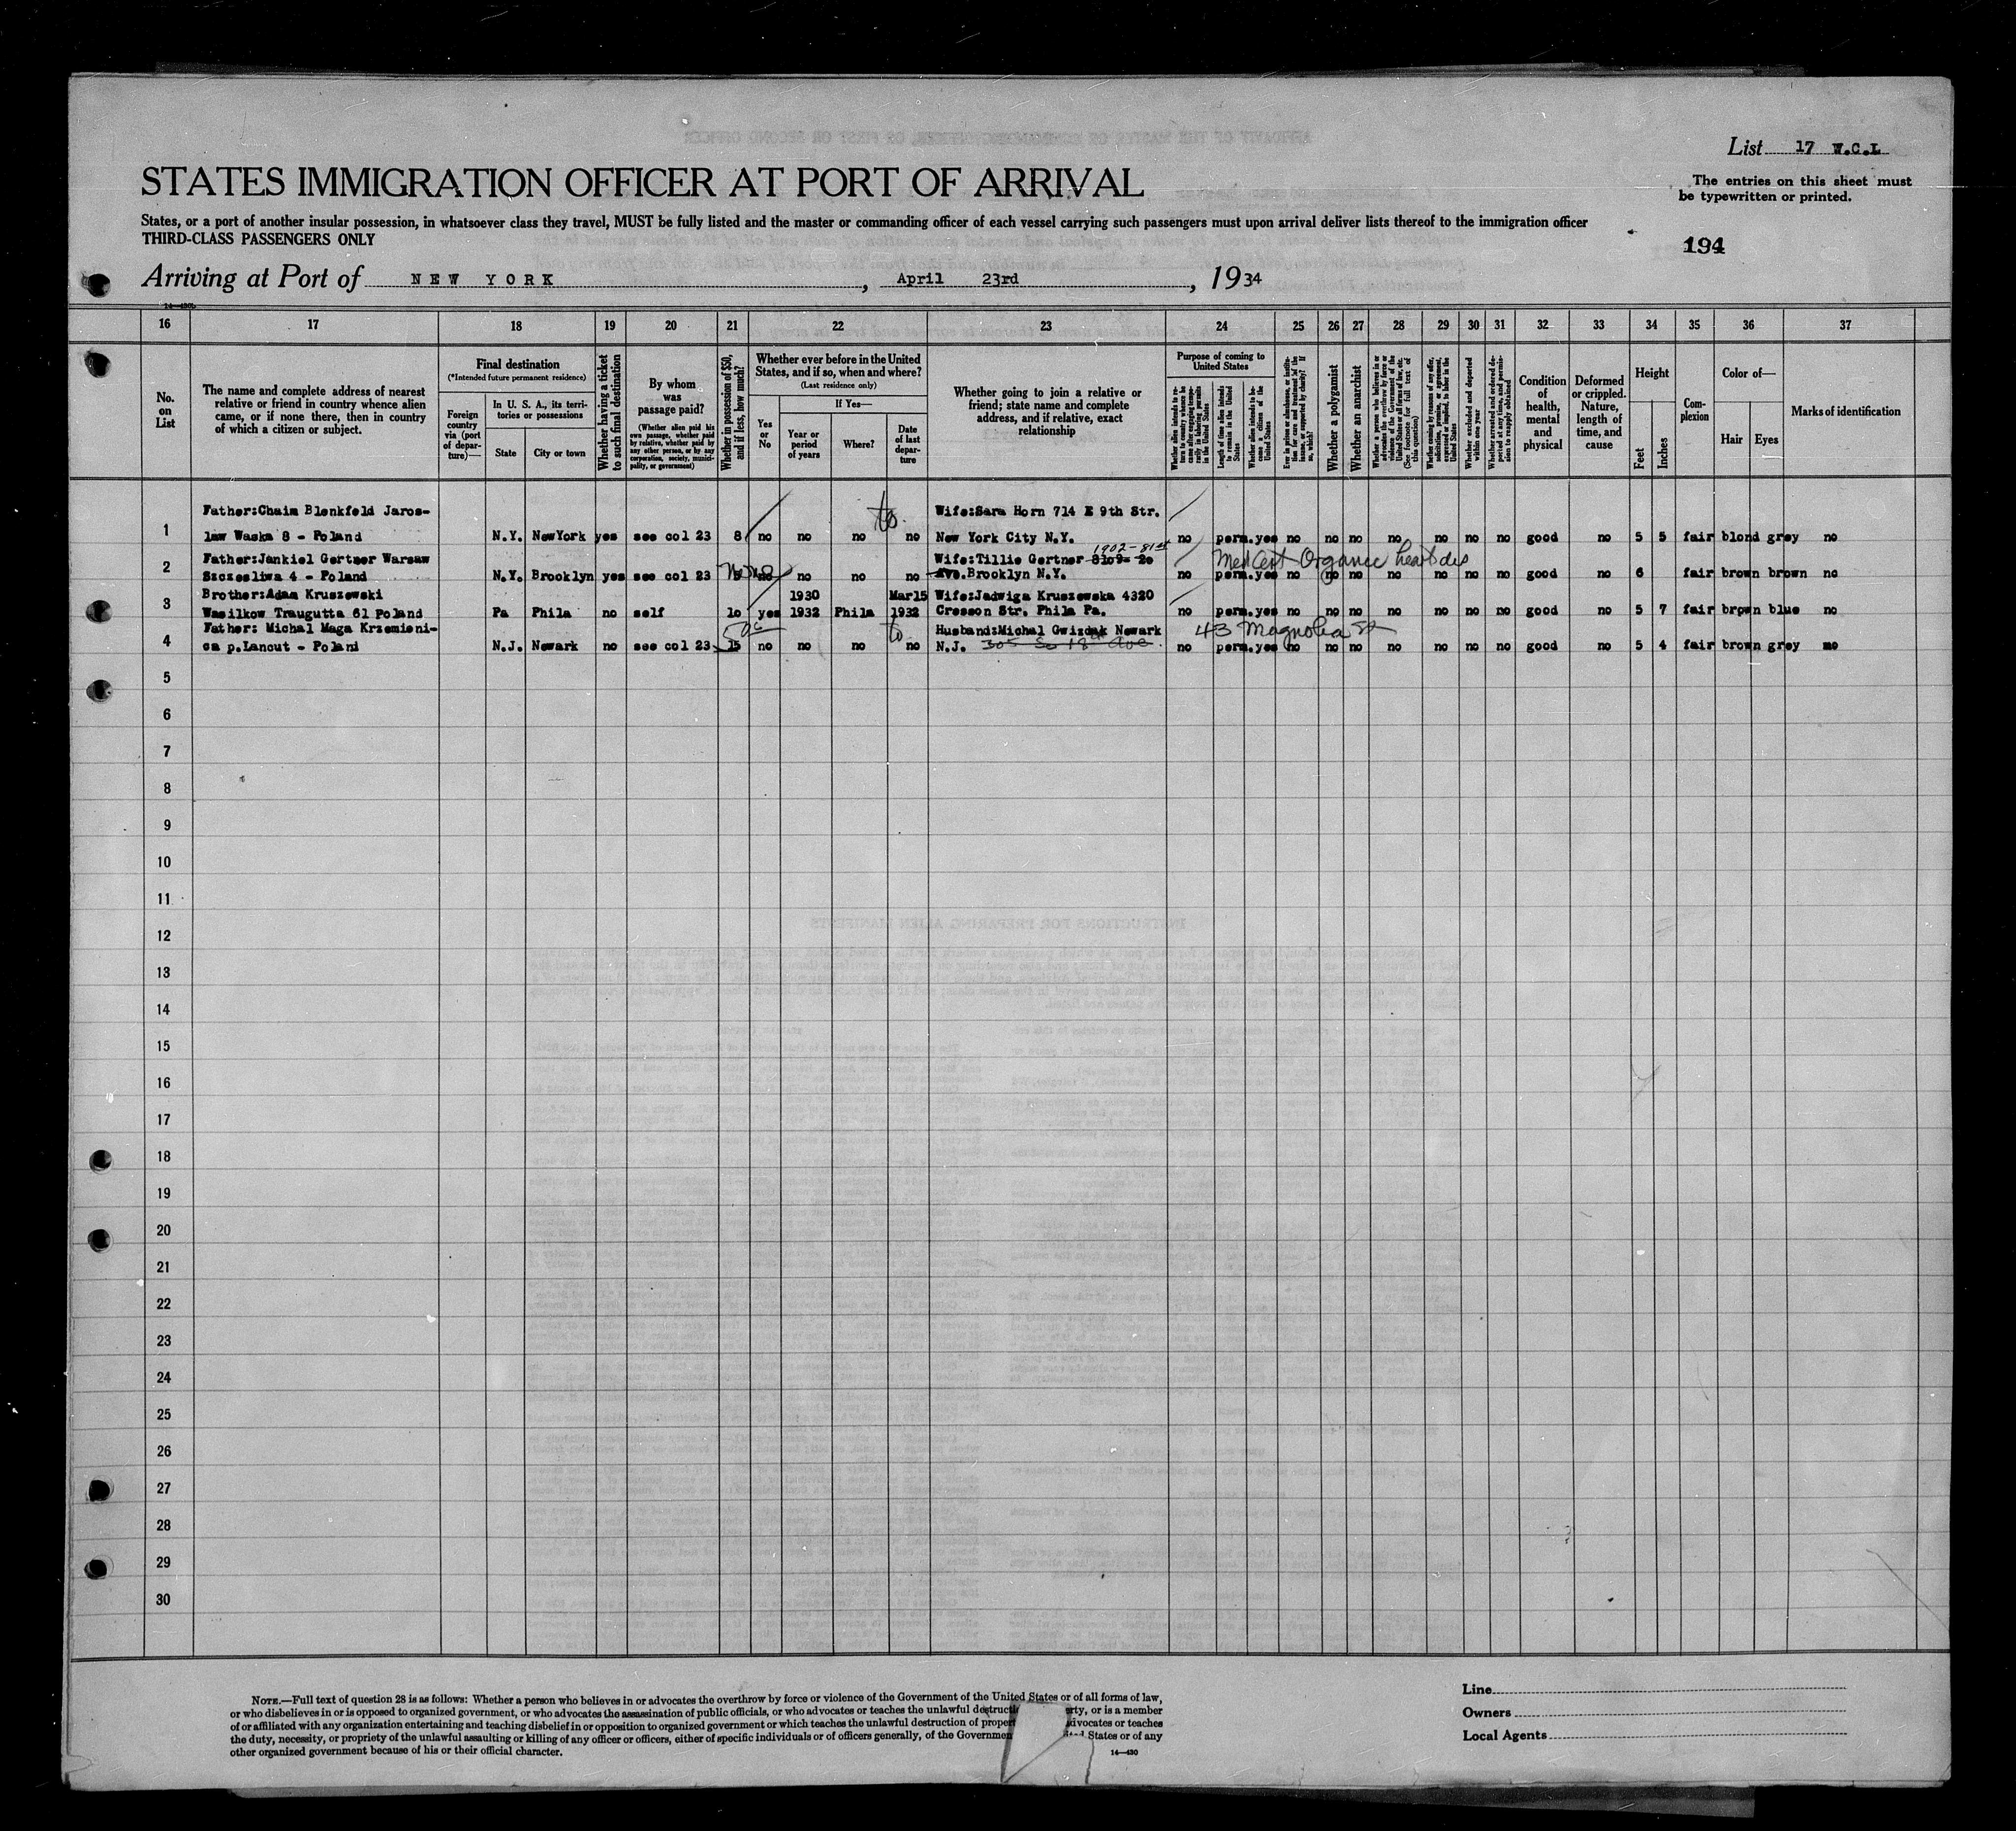 List 17 W.C.L
STATES IMMIGRATION OFFICER AT PORT OF ARRIVAL
The entries on this sheet must
be typewritten or printed.
States, or a port of another insular possession, in whatsoever class they travel, MUST be fully listed and the master or commanding officer of each vessel carrying such passengers must upon arrival deliver lists thereof to the immigration officer
THIRD-CLASS PASSENGERS ONLY
194
Arriving at Port of NEW YORK, April 23rd, 1934
14—430b
16 17 18 19 20 21 22 23 24 25 26 27 28 29 30 31 32 33 34 35 36 37
No.
on
List
The name and complete address of nearest
relative or friend in country whence alien
came, or if none there, then in country
of which a citizen or subject.
Final destination
(*Intended future permanent residence)
Foreign
country
via (port
of depar-
ture)—
In U. S. A., its terri-
tories or possessions
State
City or town
Whether having a ticket
to such final destination
By whom
was
passage paid?
(Whether alien paid his
own passage, whether paid
by relative, whether paid by
any other person, or by any
corporation, society, munici-
pality, or government)
Whether in possession of $50,
and if less, how much?
Whether ever before in the United
States, and if so, when and where?
(Last residence only)
Yes
or
No
If Yes—
Year or
period
of years
Where?
Date
of last
depar-
ture
Whether going to join a relative or
friend; state name and complete
address, and if relative, exact
relationship
Purpose of coming to
United States
Whether alien intends to re-
turn to country whence he
came after engaging tempo-
rarily in laboring pursuits
in the United States
Length of time alien intends
to remain in the United
States
Whether alien intends to be-
come a citizen of the
United States
Ever in prison or almshouse, or institu-
tion for care and treatment of the
insane, or supported by charity? If
so, which?
Whether a polygamist
Whether an anarchist
Whether a person who believes in or
advocates the overthrow by force or
violence of the Government of the
United States or all forms of law, etc.
(See footnote for full text of
this question)
Whether coming by reason of any offer,
solicitation, promise, or agreement,
expressed or implied, to labor in the
United States
Whether excluded and deported
within one year
Whether arrested and ordered de-
ported at any time, and permis-
sion to reapply obtained
Condition
of
health,
mental
and
physical
Deformed
or crippled.
Nature,
length of
time, and
cause
Height
Feet
Inches
Com-
plexion
Color of—
Hair
Eyes
Marks of identification
Father:Chaim Blenkfeld Jaros- to. Wife:Sara Horn 714 E 9th Str.
1 law Waska 8 - Poland N.Y. NewYork yes see col 23 8 no no no no New York City N.Y. no perm. yes no no no no no no no good no 5 5 fair blond grey no
Father:Jankiel Gertner Warsaw Wife:Tillie Gertner 8109- 20 1902-81st Med Cert Organic heart dis
2 Szczesliwa 4 - Poland N.Y. Brooklyn yes see col 23 none no no no no Ave.Brooklyn N.Y. no perm. yes no no no no no no no good no 6 fair brown brown no
Brother:Adam Kruszewski 1930 Mar15 Wife:Jadwiga Kruszewska 4320
3 Wasilkow Traugutta 61 Poland Pa Phila no self 10 yes 1932 Phila 1932 Cresson Str. Phila Pa. no perm. yes no no no no no no no good no 5 7 fair brown blue no
Father: Michal Maga Krzemieni- 50 to Husband:Michal Gwizdak Newark 43 Magnolia St
4 ca p.Lancut - Poland N.J. Newark no see col 23 15 no no no no N.J. 305 So 18th Ave. no perm. yes no no no no no no no good no 5 4 fair brown grey no
5
6
7
8
9
10
11
12
13
14
15
16
17
18
19
20
21
22
23
24
25
26
27
28
29
30
NOTE.—Full text of question 28 is as follows: Whether a person who believes in or advocates the overthrow by force or violence of the Government of the United States or of all forms of law,
or who disbelieves in or is opposed to organized government, or who advocates the assassination of public officials, or who advocates or teaches the unlawful destructi rty, or is a member
of or affiliated with any organization entertaining and teaching disbelief in or opposition to organized government or which teaches the unlawful destruction of propert dvocates or teaches
the duty, necessity, or propriety of the unlawful assaulting or killing of any officer or officers, either of specific individuals or of officers generally, of the Governmen States or of any
other organized government because of his or their official character.
14—430
Line
Owners
Local Agents